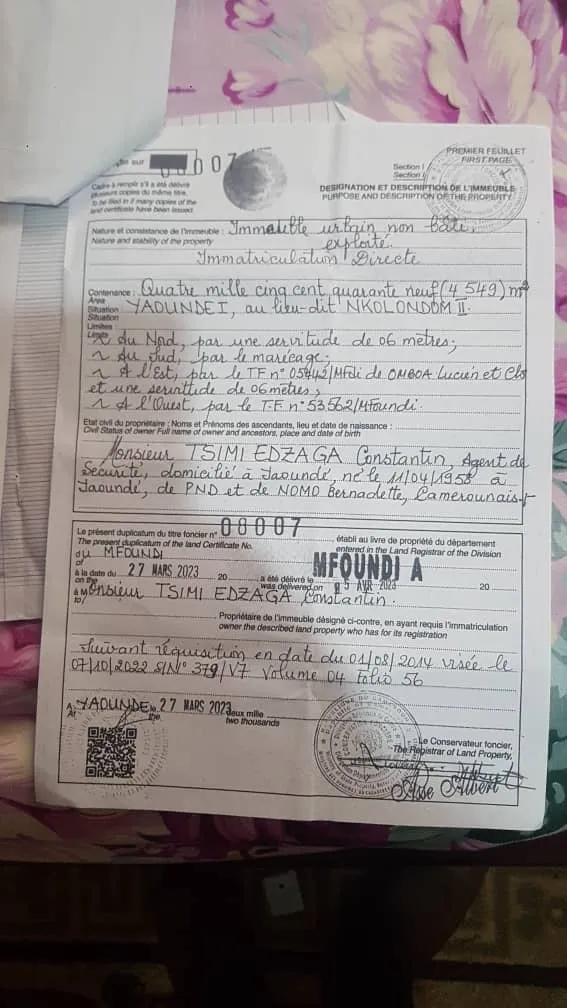 sur 007
PREMIER FEUILLET
FIRST PAGE
Section I
Section I
Cadre à remplir s'il a été délivré
plusieurs copies du même titre.
To be filled in if many copies of the
land certificate have been issued
DESIGNATION ET DESCRIPTION DE L'IMMEUBLE
PURPOSE AND DESCRIPTION OF THE PROPERTY
Nature et consistance de l'immeuble : Immeuble urbain non bâti,
Nature and stability of the property
exploité.
Immatriculation Directe
Contenance : Quatre mille cinq cent quarante neuf (4 549) m²
Area
Situation YAOUNDE I, au lieu-dit NKOLONDOM II.
Situation
Limites :
Limits
du Nord, par une servitude de 06 mètres;
du Sud, par le marécage;
A l'Est, par le TF n° 05442/Mfdi de OMBOA Lucien et
et une servittude de 06 mètres;
A l'Ouest, par le T.F n° 53562/Mfoundi.
Etat civil du propriétaire : Noms et Prénoms des ascendants, lieu et date de naissance :
Civil Status of owner Full name of owner and ancestors, place and date of birth
Monsieur TSIMI EDZAGA Constantin, Agent de
Sécurité, domicilié à Yaoundé, né le 11/04/1958 à
Yaoundé, de PND et de NOMO Bernadette, Camerounais
Le présent duplicatum du titre foncier n° 00007 établi au livre de propriété du département
The present duplicatum of the land Certificate No. entered in the Land Registrar of the Division
du MFOUNDI MFOUNDI A
of
à la date du 27 MARS 2023 20 a été délivré le 5 AVR 2023 20
on the was delivered on
à Monsieur TSIMI EDZAGA Constantin.
to/
Propriétaire de l'immeuble désigné ci-contre, en ayant requis l'immatriculation
owner the described land property who has for its registration
Suivant réquisition en date du 01/08/2014 visée le
07/10/2022 S/N° 379/V7 Volume 04 folio 56
A YAOUNDE le 27 MARS 2023 deux mille
At the two thousands
Le Conservateur foncier,
The Registrar of Land Property,
Albert